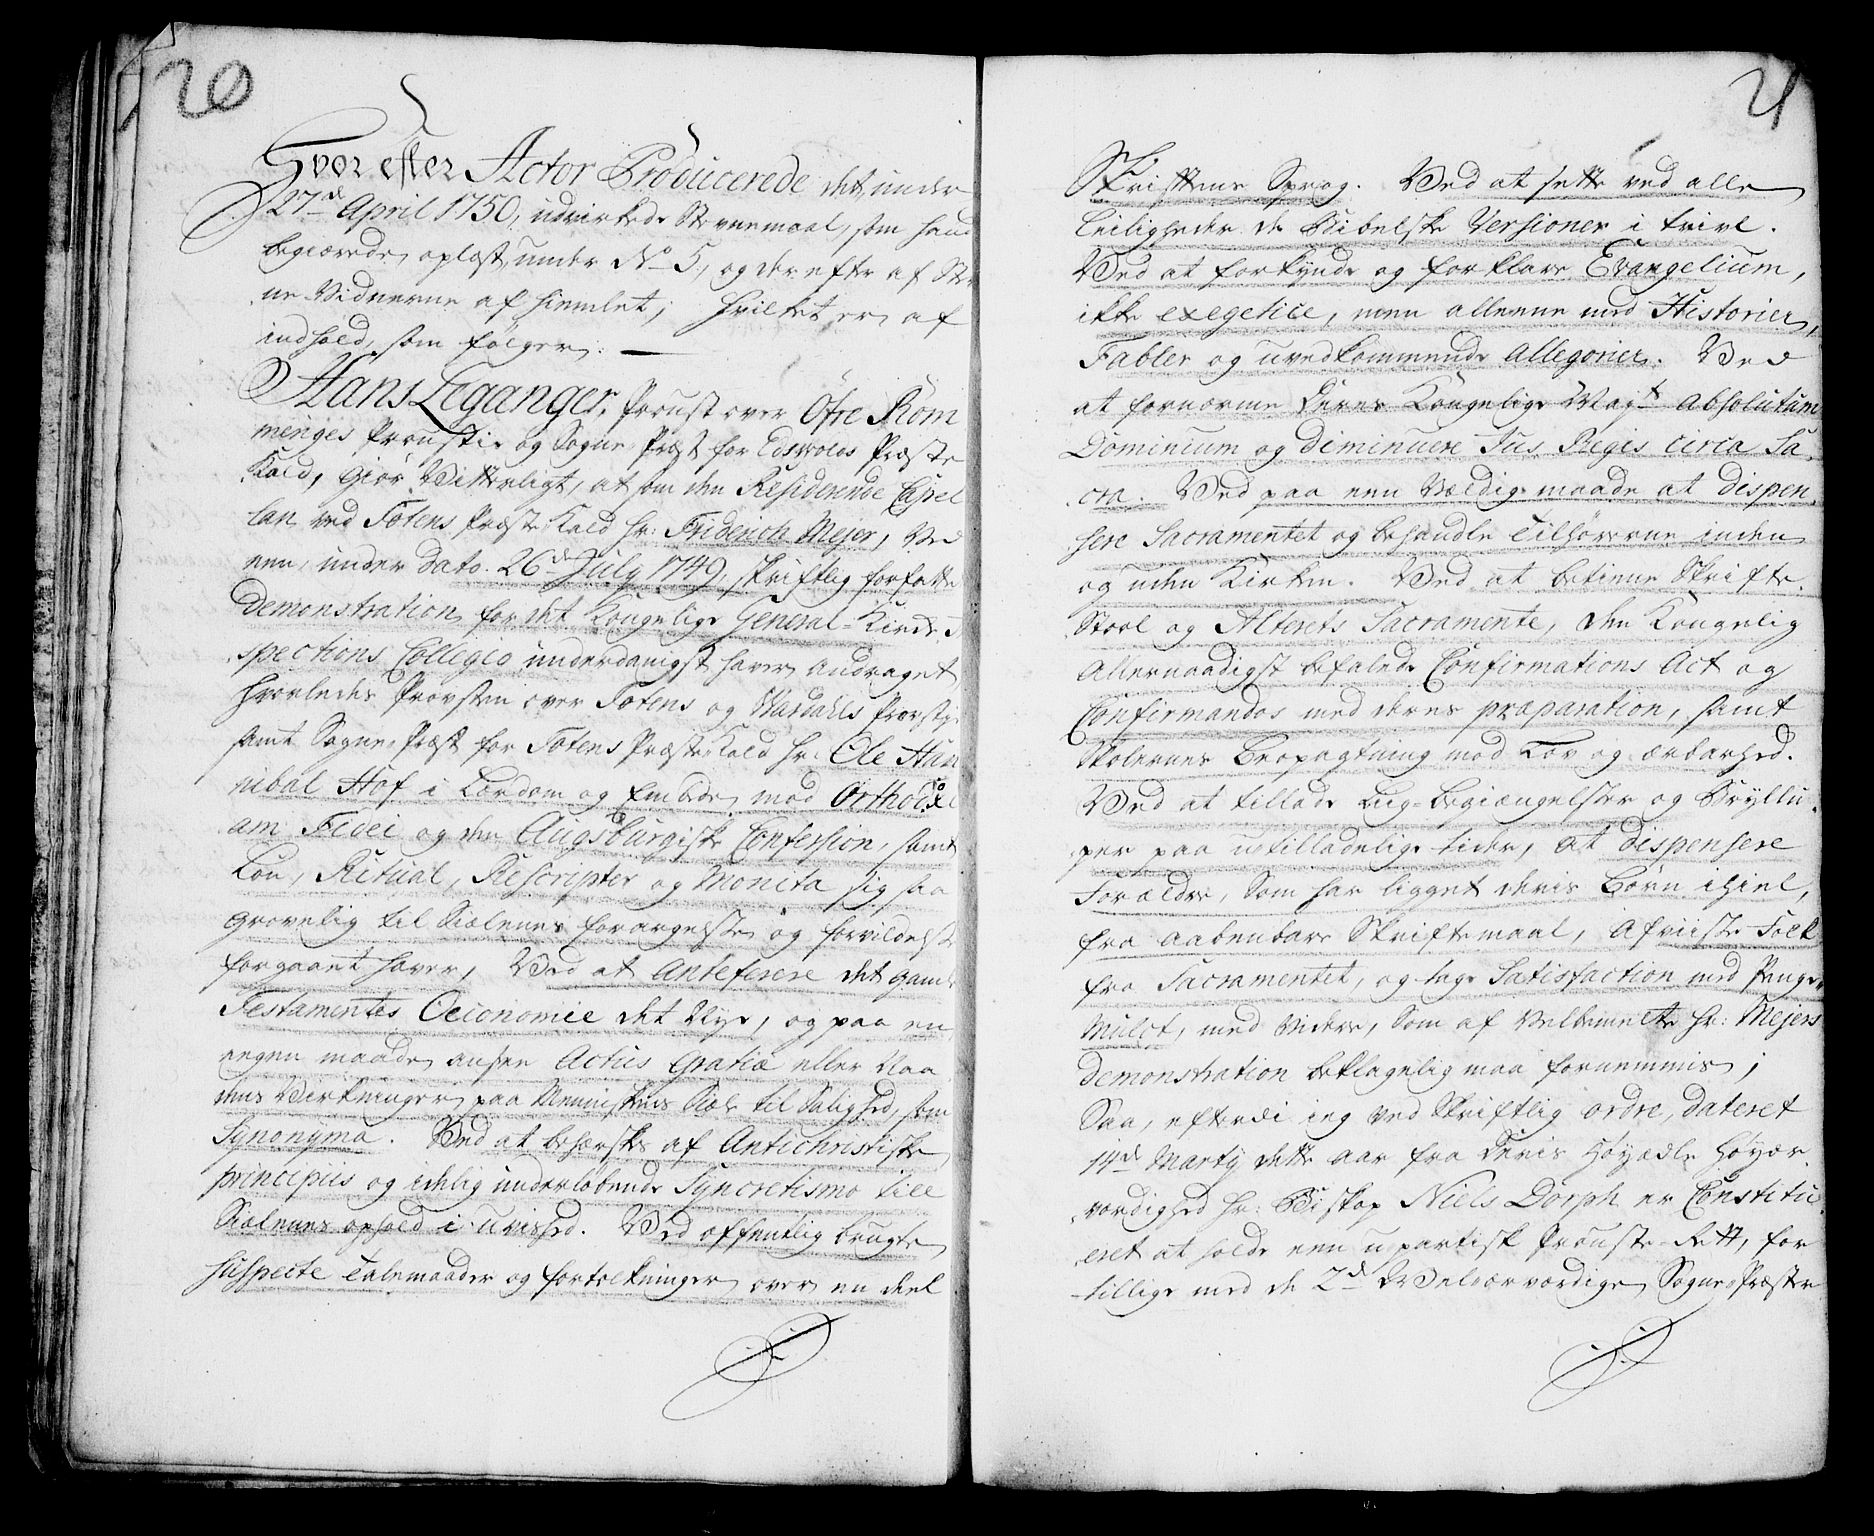 20
Hvor efter Actor Producerede det under
27de April 1750, udvirkede Stevnemaal, som hand
begiærede oplæst, under No 5, og der efter af Stev
ne Vidnerne af hiemlet; hvilket er af
indhold, som følger:
Hans Leganger, Proust over Öfre Rom
meriges Prousti og Sogne Præst for Edsvolds Præste
Kald, Giör Vitterligt, at som den Residerende Capel
lan ved Totens Præste Kald hr: Friderich Mejer, Ved
een, under dato 26de July 1749, skriftlig forfatte
Demonstration for det Kongelige General-Kirke-In
spections Collegio underdanigst haver andraget,
hvorledes Provsten over Totens og Wardahls Provsti,
samt Sogne-Præst for Totens Præste Kald hr: Ole Han
nibal Hof i Lærdom og Embede mod Orthodoxi
am Fidei og den Augsburgiske Confession, samt
Lov, Ritual, Rescripter og Monita sig saa
grovelig til Siælenes forargelse og forvildelse
forgaaet haver, Ved at Anteferere det gamle
Testamentes Oeconomie det Nye, og paa en
egen maade ansee Actus Gratiæ eller Naa
dens Virkninger paa Menniskens Siæl til Salighed, som
Synonyma. Ved at beherskes af Antichristiske
principiis og idelig underløbende Syncretismo till
Siælenes ophold i uvished. Ved offentlig brugte
suspecte Talemaader og fortolkninger over en deel
21
Skriftens Sprog. Ved at sette ved alle
Leiligheder de Bibelske Versioner i tvivl.
Ved at forkynde og forklare Evangelium,
ikke exegetice, men alleene med Historier,
Fabler og uvedkommende Allegorier. Ved
at fornærme Deres Kongelige Mayts Absolutum
Dominium og diminuere Jus Regis circa Sa
cra. Ved paa een vældig maade at dispen
sere Sacramentet og behandle Tilhörerne inden
og uden Kirken. Ved at betiene Skrifte
Stool og Alterets Sacramente, den Kongelig
Allernaadigst befalede Confirmations Act og
Confirmandos med deres præparation, samt
Skolernes Beopagtning mod Lov og ærbarhed.
Ved at tillade Liig-Begiængelser og Bryllu
per paa utilladelige tider, at dispensere
Forældre, som har ligget deris Börn ihiel,
fra aabenbare Skriftemaal, Afviiste Folk
fra Sacramentet, og tage Satisfaction med Penge
Mulct, med Videre, som af Velbemelte hr: Mejers
demonstration beklagelig maa fornemmis;
Saa, efterdi ieg ved Skriftlig ordre, dateret
14de Marty dette aar fra Deris Höyædle Höyær
værdighed hr: Biskop Niels Dorph er Constitu
eret at holde een upartisk Prouste-Rett, for
tillige med de 2de Velærværdige Sogne-Præster